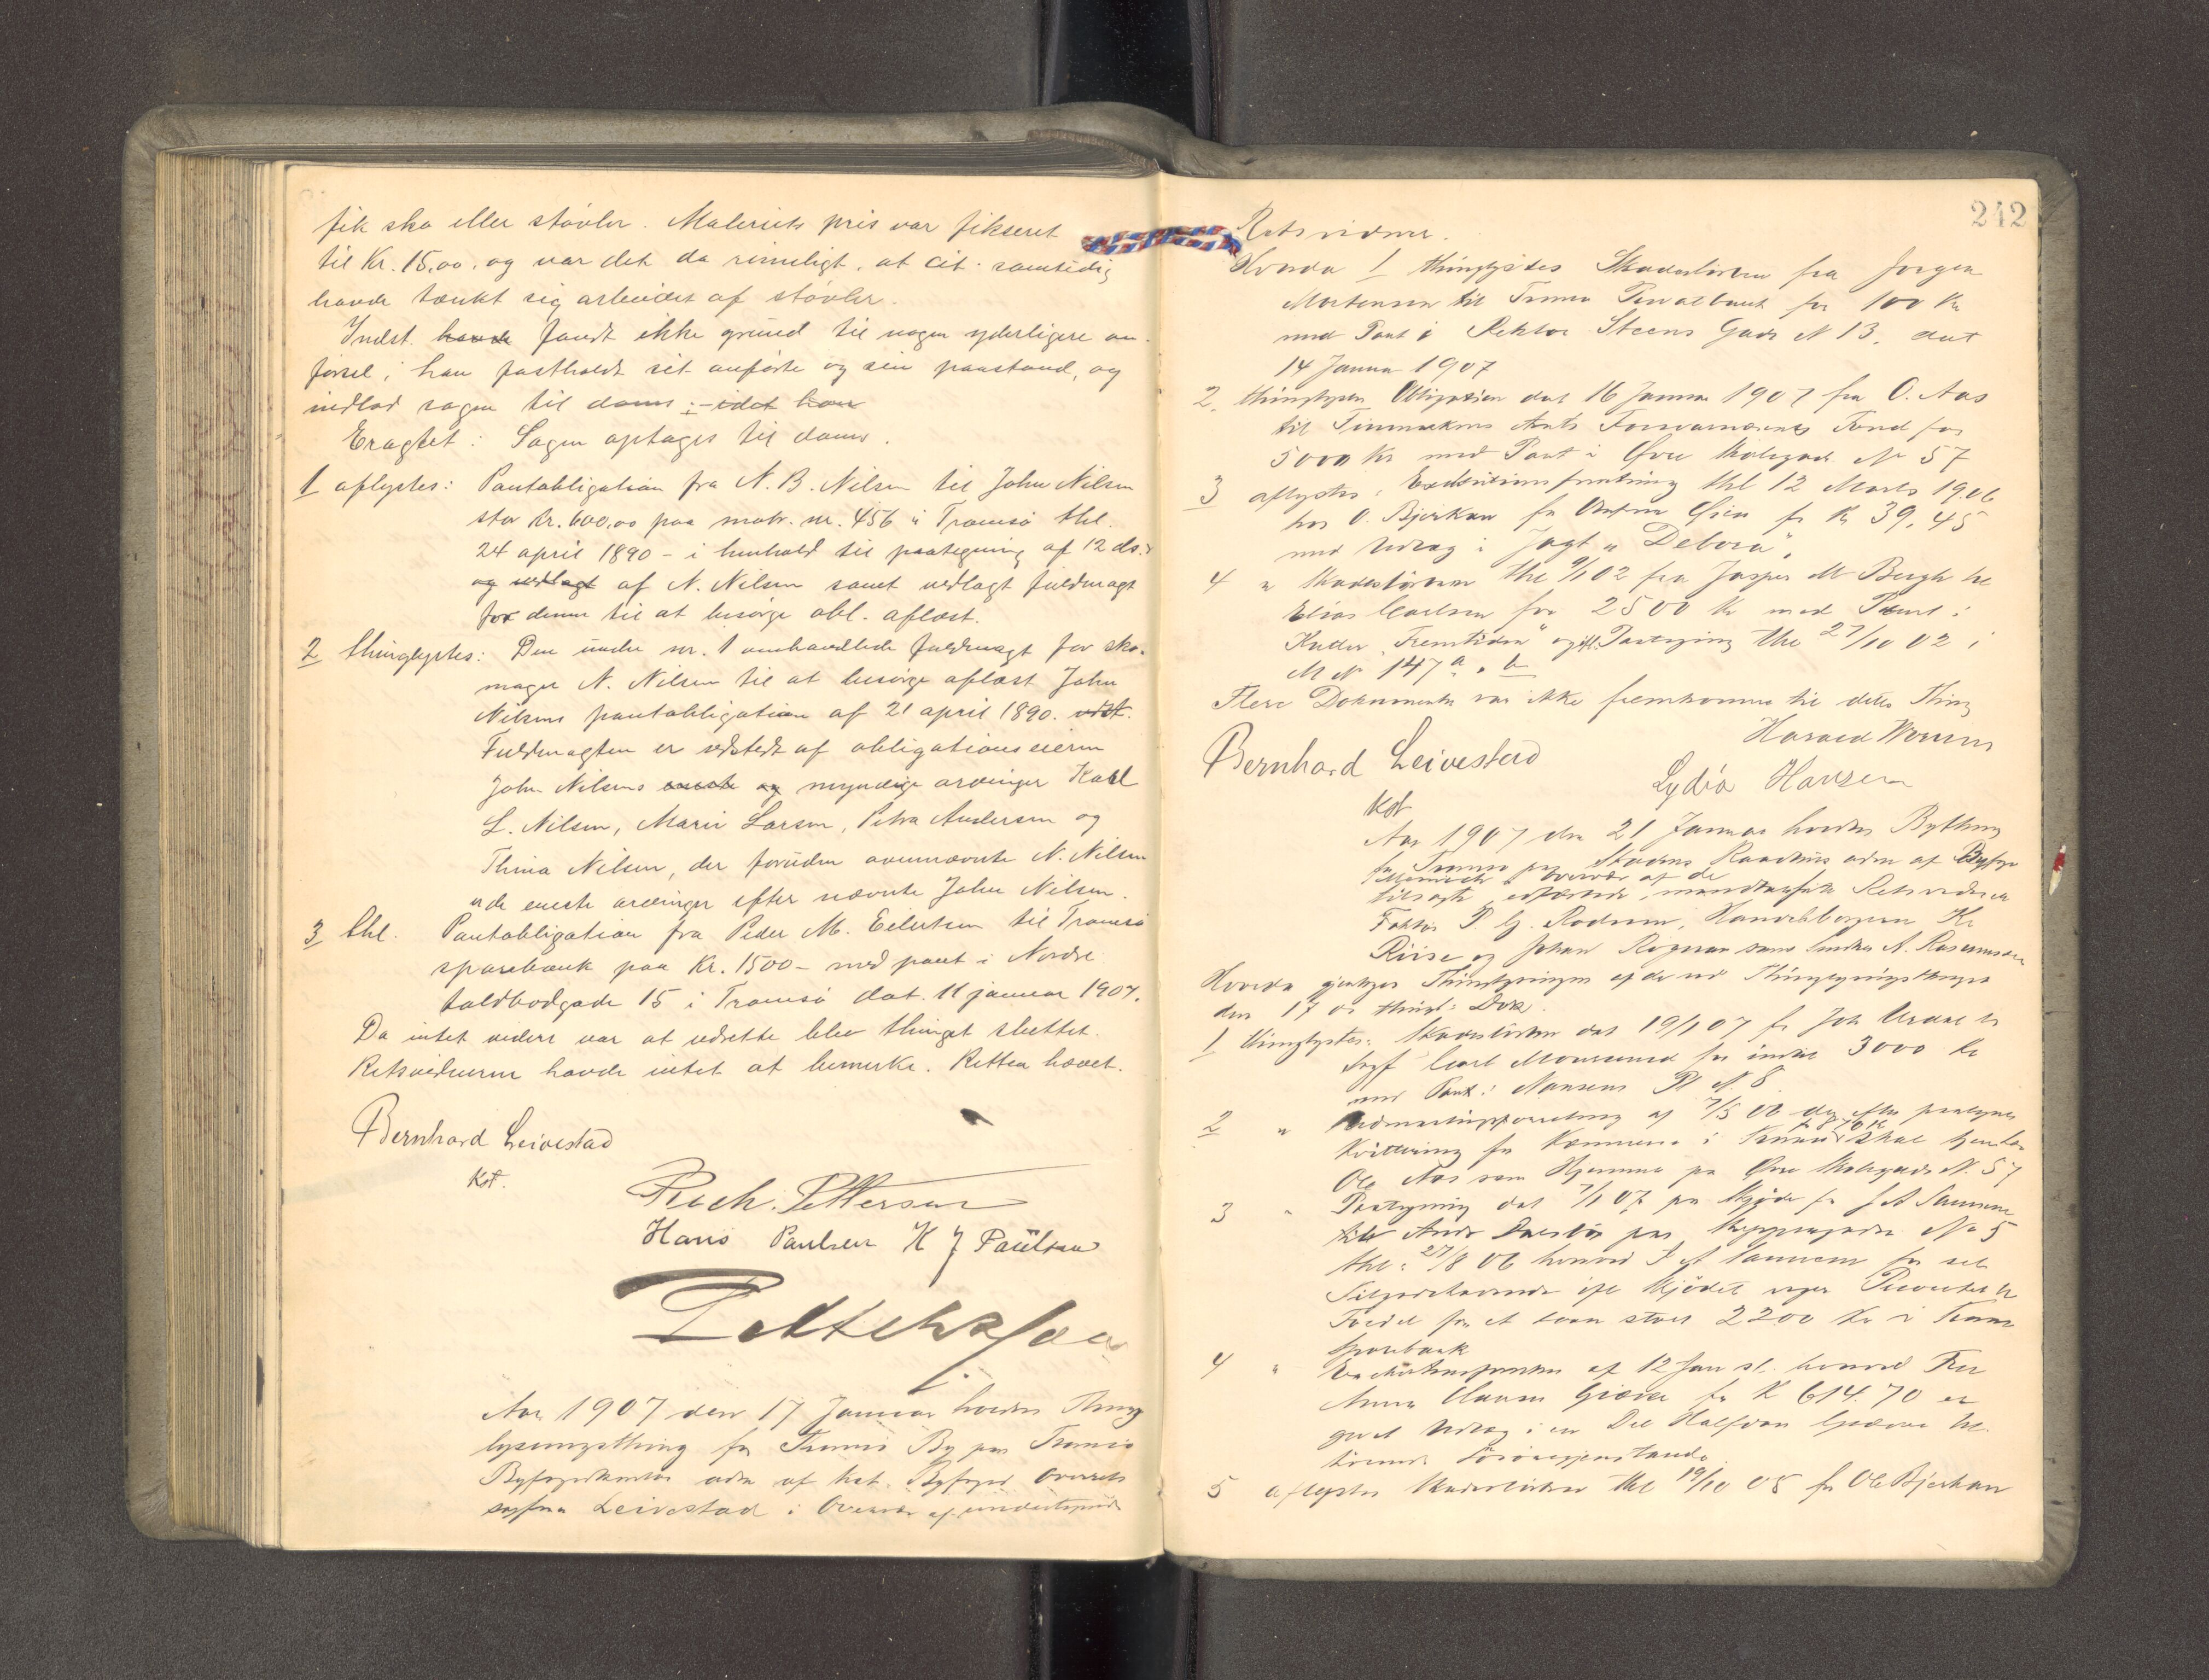 fik sko eller støvler. Materiets pris var fikseret
til Kr. 15,00, og var det da rimeligt, at cit. samtidig
havde tænkt sig arbeidet af støvler.
Indst. havde fandt ikke grund til nogen yderligere an-
førsel; han fastholdt sit anførte og sin paastand, og
indlod sagen til doms; – idet han
Eragtet: Sagen optages til doms.
1 aflystes: Pantobligation fra N. B. Nilsen til John Nilsen
stor kr. 600,00 paa matr. nr. 456 i Tromsø thl.
24 april 1890 – i henhold til paategning af 12 ds.
og vedlagt af N. Nilsen samt vedlagt fuldmagt
for denne til at besørge obl. aflæst.
2 thinglystes: Den under nr. 1 omhandlede fuldmagt for sko-
mager N. Nilsen til at besørge aflæst John
Nilsens pantobligation af 21 april 1890. udst.
Fuldmagten er udstedt af obligationseieren
John Nilsens eneste og myndige arvinger Karl
L. Nilsen, Marie Larsen, Petra Andersen og
Thina Nilsen, der foruden ovennævnte N. Nilsen
er de eneste arvinger efter nævnte John Nilsen.
3 thl. Pantobligation fra Peder M. Eilertsen til Tromsø
sparebank paa Kr. 1500 – med pant i Nordre
toldbodgade 15 i Tromsø dat. 11 januar 1907.
Da intet videre var at udrette blev thinget sluttet.
Retsvidnerne havde intet at bemerke. Retten hævet.
Bernhard Leivestad
Kst.
Pettersen
Hans Paulsen K J Paulsen
Aar 1907 den 17 Januar holdtes Thing
lysningsthing for Tromsø By paa Tromsø
Byfogedkontor adm af kst. Byfoged Overrets
sagfører Leivestad i Overvær af undertegnede
242
Retsvidner.
Hvorda 1 thinglystes Skadesløsbrev fra Jørgen
Mortensen til Tromsø Privatbank for 100 Kr
med Pant i Rektor Steens Gade N 13, dat
14 Januar 1907
2. thinglystes Obligation dat 16 Januar 1907 fra O. Aas
til Finmarkens Amts Fond for
5000 Kr med Pant i Øvre Skolegade No 57
3 aflystes: Exekutionsforretning thl 12 Marts 1906
hos O. Bjerkan for Øien for Kr 39,45
med Udlæg i Jagt "Debora".
4 " Skadesløsbrev thl 9/1 02 fra Jasper M Bergh til
Elias Carlsen for 2500 Kr med Pant i
Kutter "Fremtiden" og ifl. Paategning thl 27/10 02 i
M No 147 a, b
Flere Dokumenter var ikke fremkomne til dette Thing
Harald
Bernhard Leivestad
Lydia Hansen
Kst
Aar 1907 den 21 Januar holdtes Bything
for Tromsø paa Stadens Raadhus adm af Byfoged
i Overvær af de
tilsagte, edfæstede, mandtalsførte Retsvidner
Faktor P. G. Rodum, Handelsborgerne K.
Riise og Johan Rognan samt Snedker A. Rasmussen
Hvorda gjentoges Thinglysningen af de ved Thinglysningsthinget
den 17 ds thingl: Dok.
1 thinglystes: Skadesløsbrev dat 19/1 07 fra Joh til
Sagf Carl for indtil 3000 Kr
med Pant i Nansens Pl N. 8
2 " af 7/5 06 efter paategnet
Kvittering fra Kæmneren i Tromsø skal tjene
Ole Aas som Hjemmel paa Øvre Skolegade N. 57
3 " Paategning dat 7/1 07 paa Skjøde fra J A
til Andr paa Skippergaden No 5
thl: 27/8 06 hvorved J A for sit
Tilgodehavende ifl Skjødet viger Prioritet til
Fordel for et Laan stort 2200 Kr i Tromsø
Sparebank
4 " Exekutionsforretn af 12 Jan sl. hvorved Fru
Anna Hansen Giæver for K 614.70 er
givet Udlæg i en Del Halfdan Giæver til-
hørende Løsøregjenstande.
5 aflystes Skadesløsbrev thl 19/10 05 fra Ole Bjerkan